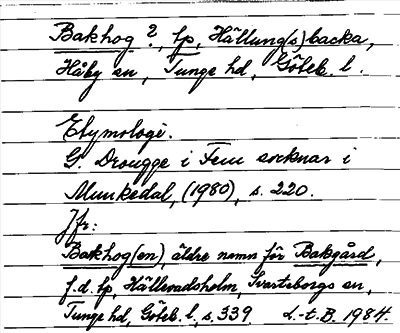 Bakhog ?, lp, Hällung(s)backa,
Håby sn, Tunge hd, Göteb. l.
Etymologi.
G. Drougge i Fem socknar i
Munkedal, (1980), s. 220.
Jfr:
Bakhog(en), äldre namn för Bakgård,
f.d. lp, Hällevadsholm, Svarteborgs sn,
Tunge hd, Göteb. l, s. 339. L.-t. B. 1984.